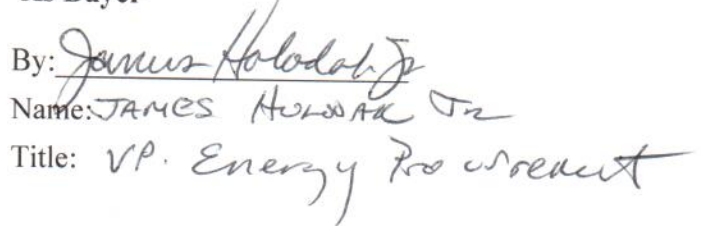 As Buyer
By: James Holodak Jr
Name: JAMES HOLODAK Jr
Title: VP. Energy Procurement